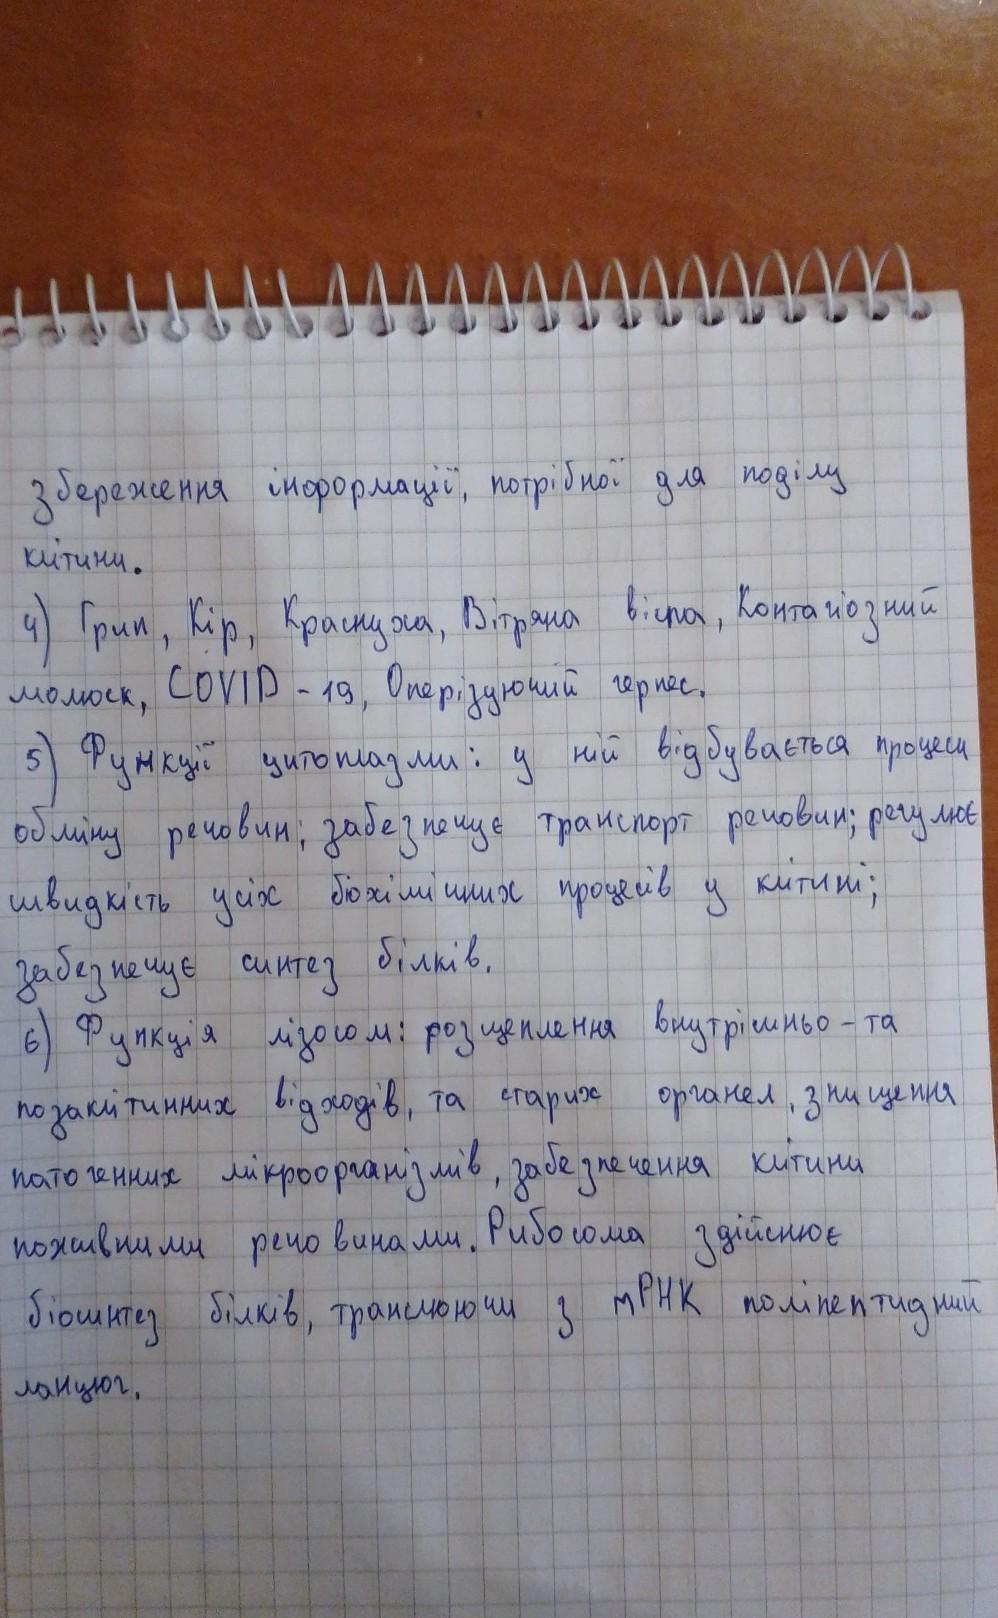 збереження інформації, потрібної для поділу
клітини.
4) Грип, Кір, Краснуха, Вітряна віспа, Контагіозний
молюск, COVID-19, Оперізуючий герпес.
5) Функції цитоплазми: у ній відбувається процеси
обміну речовин; забезпечує транспорт речовин; регулює
швидкість усіх біохімічних процесів у клітині;
забезпечує синтез білків.
6) Функція лізосом: розщеплення внутрішньо-та
позаклітинних відходів, та старих органел, знищення
патогенних мікроорганізмів, забезпечення клітини
поживними речовинами. Рибосома здійснює
біосинтез білків, транслюючи з мРНК поліпептидний
ланцюг.